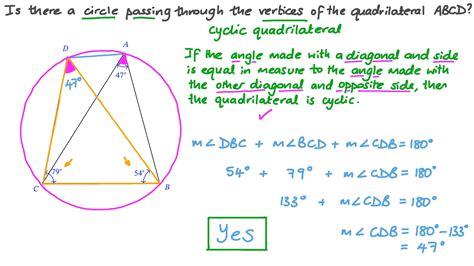 Is there a circle passing through the vertices of the quadrilateral ABCD?
cyclic quadrilateral
If the angle made with a diagonal and side
is equal in measure to the angle made with
the other diagonal and opposite side, then
the quadrilateral is cyclic.
D
A
47°
47°
79°
54°
C
B
m∠DBC + m∠BCD + m∠CDB = 180°
54° + 79° + m∠CDB = 180°
133° + m∠CDB = 180°
m∠CDB = 180° - 133°
= 47°
Yes